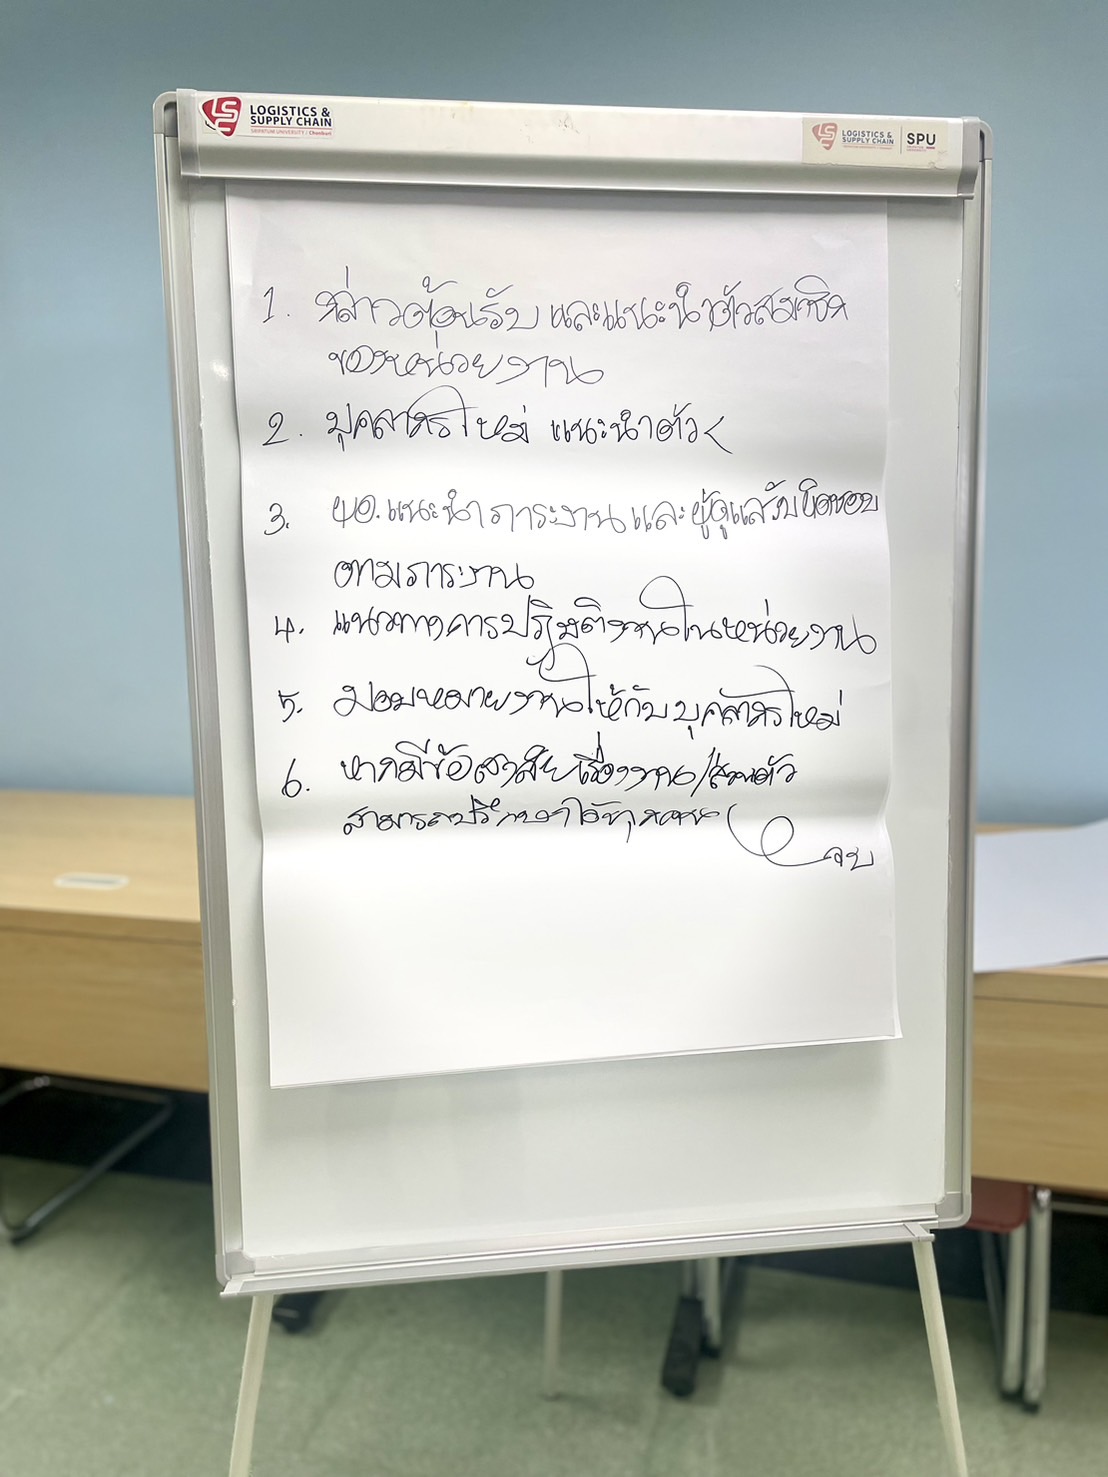 LOGISTICS &
SUPPLY CHAIN
SRIPATUM UNIVERSITY / Chonburi
LOGISTICS &
SUPPLY CHAIN
SPU
1. กล่าวต้อนรับ และแนะนำตัวสมาชิก
ของหน่วยงาน
2. บุคลากรใหม่ แนะนำตัว
3. ผอ.แนะนำภาระงาน และผู้ดูแลรับผิดชอบ
ตามภาระงาน
4. แนวทางการปฏิบัติงานในหน่วยงาน
5. มอบหมายงานให้กับบุคลากรใหม่
6. หากมีข้อสงสัยเรื่องงาน/ส่วนตัว
สามารถปรึกษาได้ทุกคน
จบ